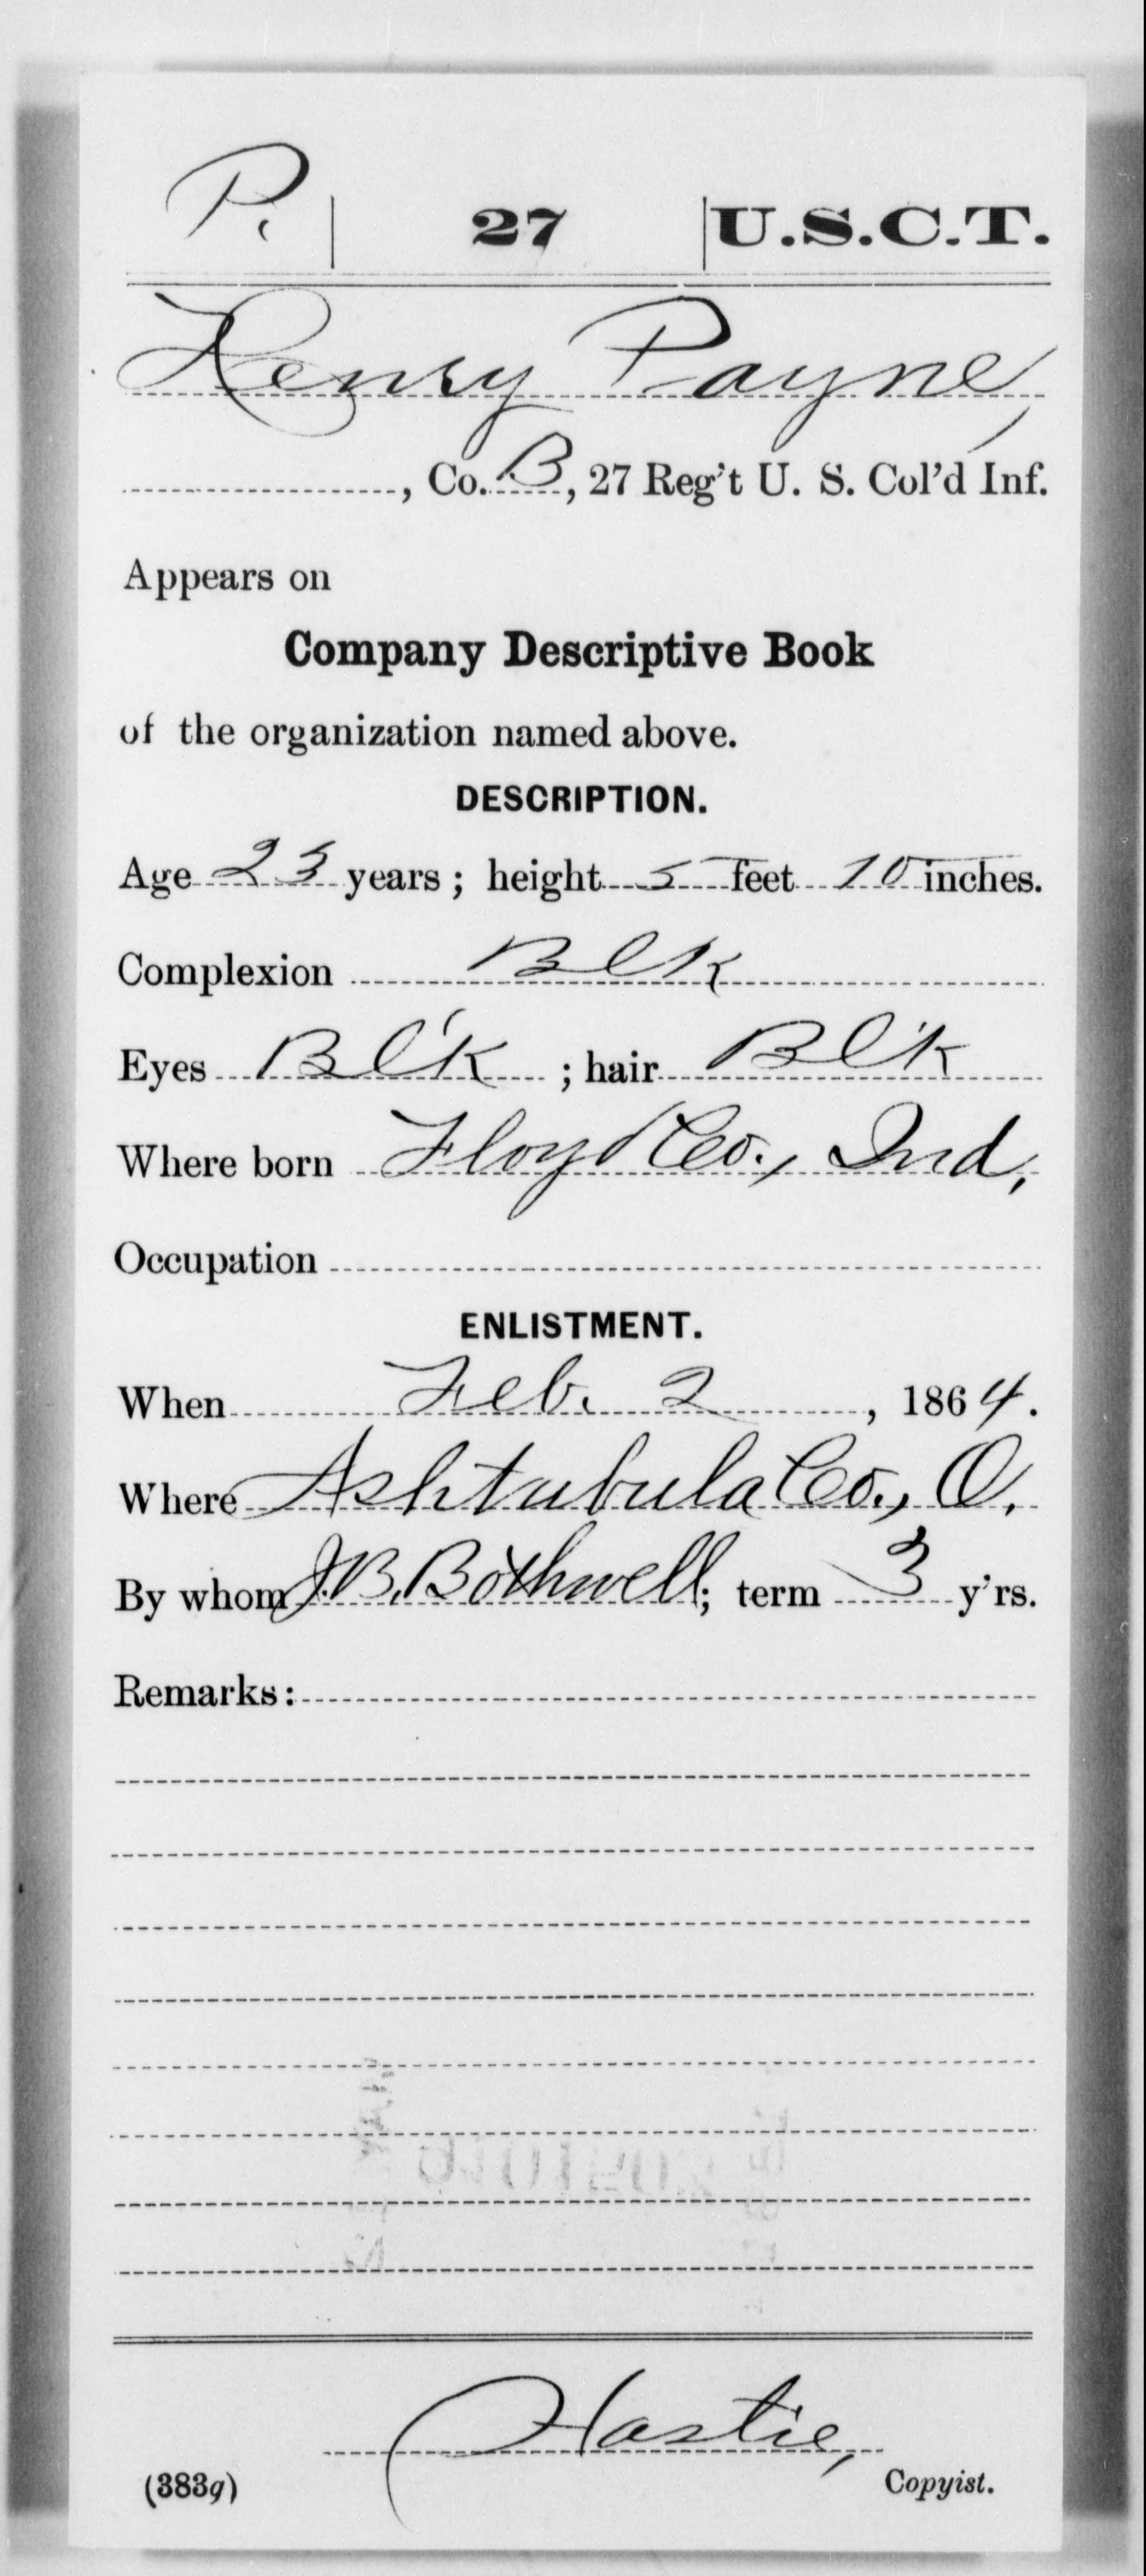 P. 27 U.S.C.T.
Henry Payne,
, Co. B, 27 Reg't U. S. Col'd Inf.
Appears on
Company Descriptive Book
of the organization named above.
DESCRIPTION.
Age 23 years; height 5 feet 10 inches.
Complexion Blk
Eyes Bl'k ; hair Bl'k
Where born Floyd Co., Ind,
Occupation
ENLISTMENT.
When Feb. 2, 1864.
Where Ashtabula Co., O.
By whom J.B. Bothwell; term 3 y'rs.
Remarks:
Hastie,
(383g) Copyist.